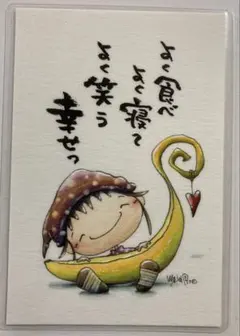 よく食べ
よく寝て
よく笑う
幸せっ